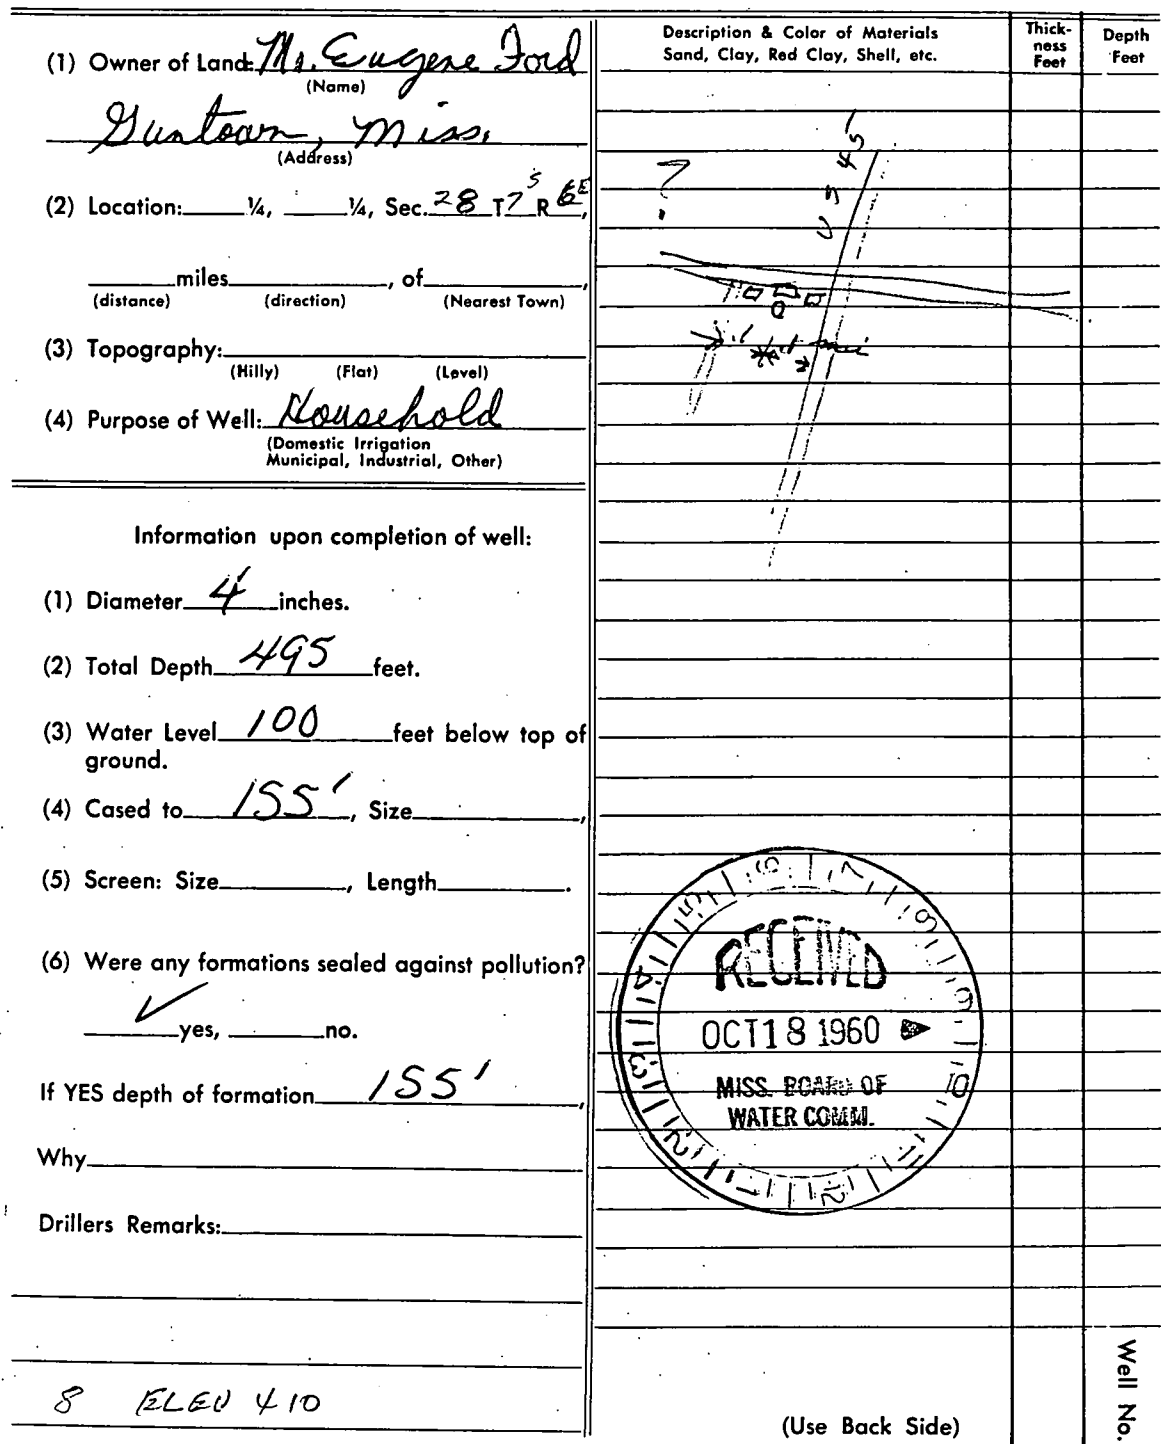 (1) Owner of Land: Mr. Eugene Ford
(Name)
Guntown, Miss.
(Address)
(2) Location: ¼, ¼, Sec. 28 T7S R 6E,
miles , of ,
(distance) (direction) (Nearest Town)
(3) Topography:
(Hilly) (Flat) (Level)
(4) Purpose of Well: Household
(Domestic Irrigation
Municipal, Industrial, Other)
Information upon completion of well:
(1) Diameter 4 inches.
(2) Total Depth 495 feet.
(3) Water Level 100 feet below top of
ground.
(4) Cased to 155', Size ,
(5) Screen: Size , Length .
(6) Were any formations sealed against pollution?
✓ yes, no.
If YES depth of formation 155',
Why
Drillers Remarks:
8 ELEV 410
Description & Color of Materials
Sand, Clay, Red Clay, Shell, etc.
Thick-
ness
Feet
Depth
Feet
?
US 45
RECEIVED
OCT 18 1960
MISS. BOARD OF
WATER COMM.
1 2 3 4 5 6 7 8 9 10 11 12
(Use Back Side)
Well No.